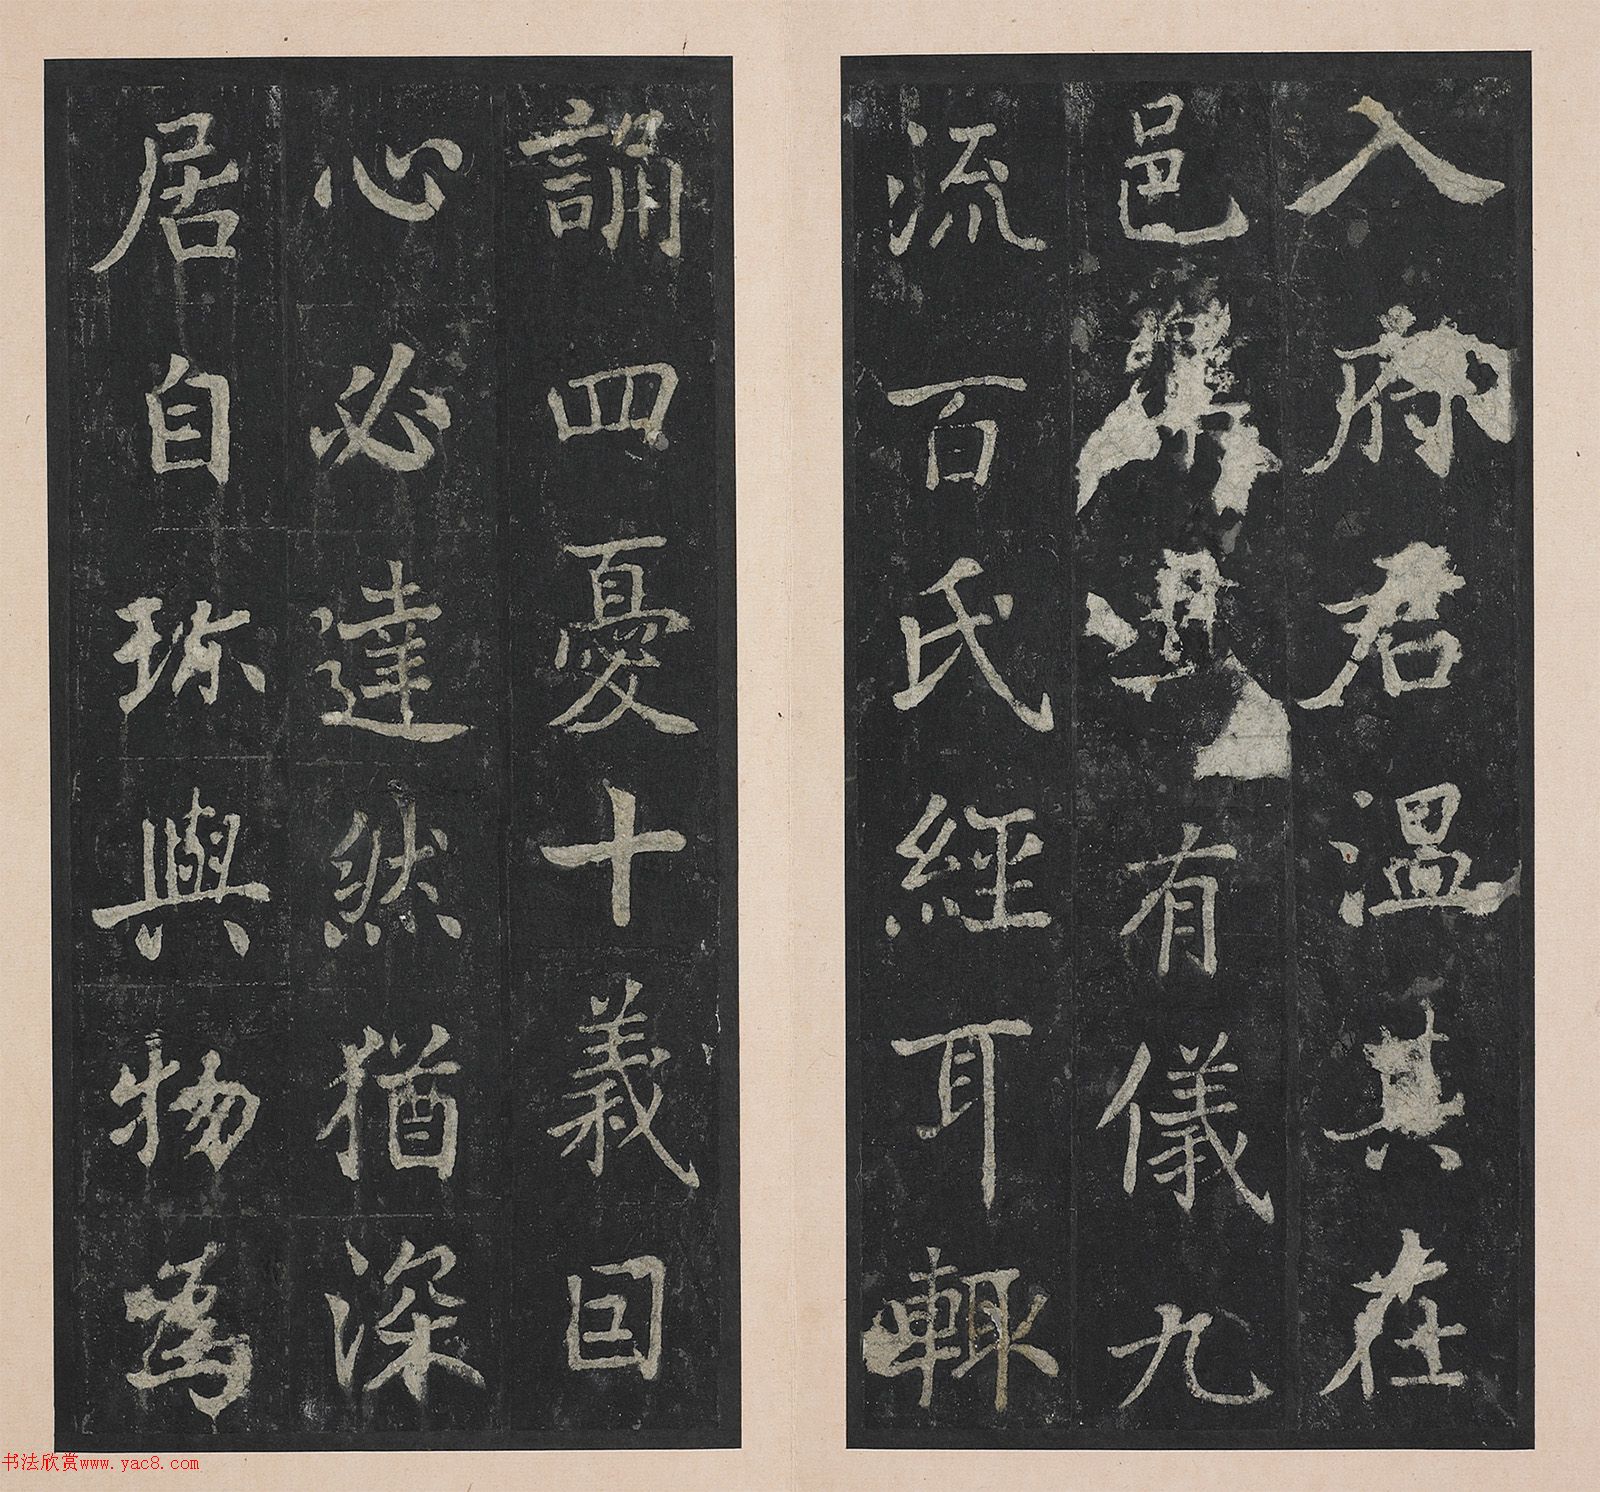 入府君温其在
邑有儀九
流百氏經耳輒
誦四憂十義囙
心必達然猶深
居自珎與物為
书法欣赏www.yac8.com